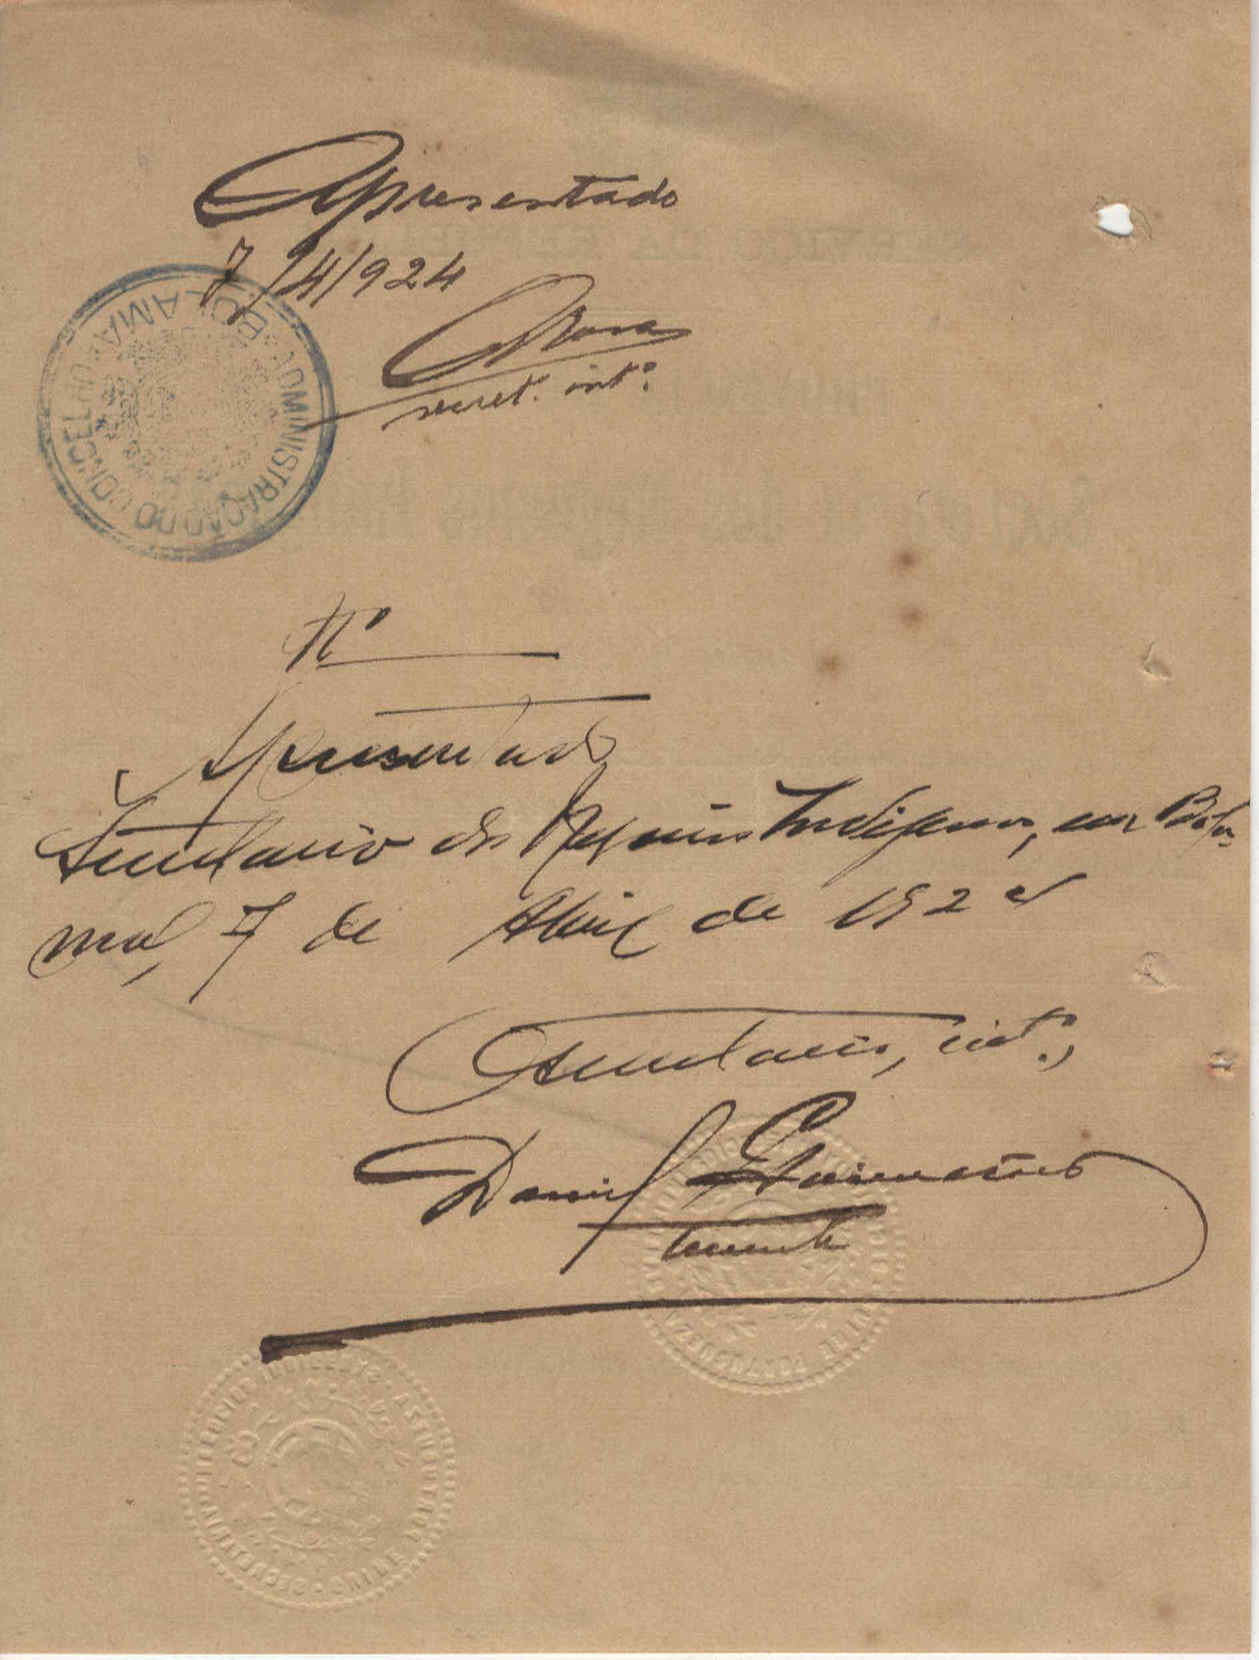 Apresentado
7/4/924
secret. intº.
ADMINISTRAÇÃO DO CONCELHO
BOLAMA
Nº
Apresentado
Secretario dos Negocios Indigenas, em Bola-
ma, 7 de Abril de 1924
O secretario, intº.,
Daniel Guimarães
tenente